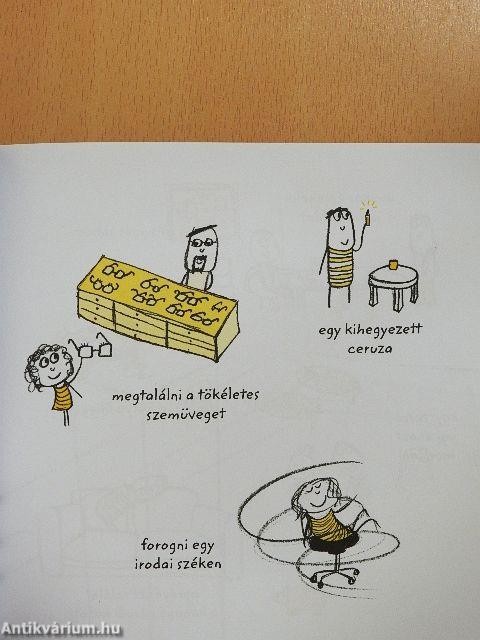 egy kihegyezett
ceruza
megtalálni a tökéletes
szemüveget
forogni egy
irodai széken
Antikvárium.hu